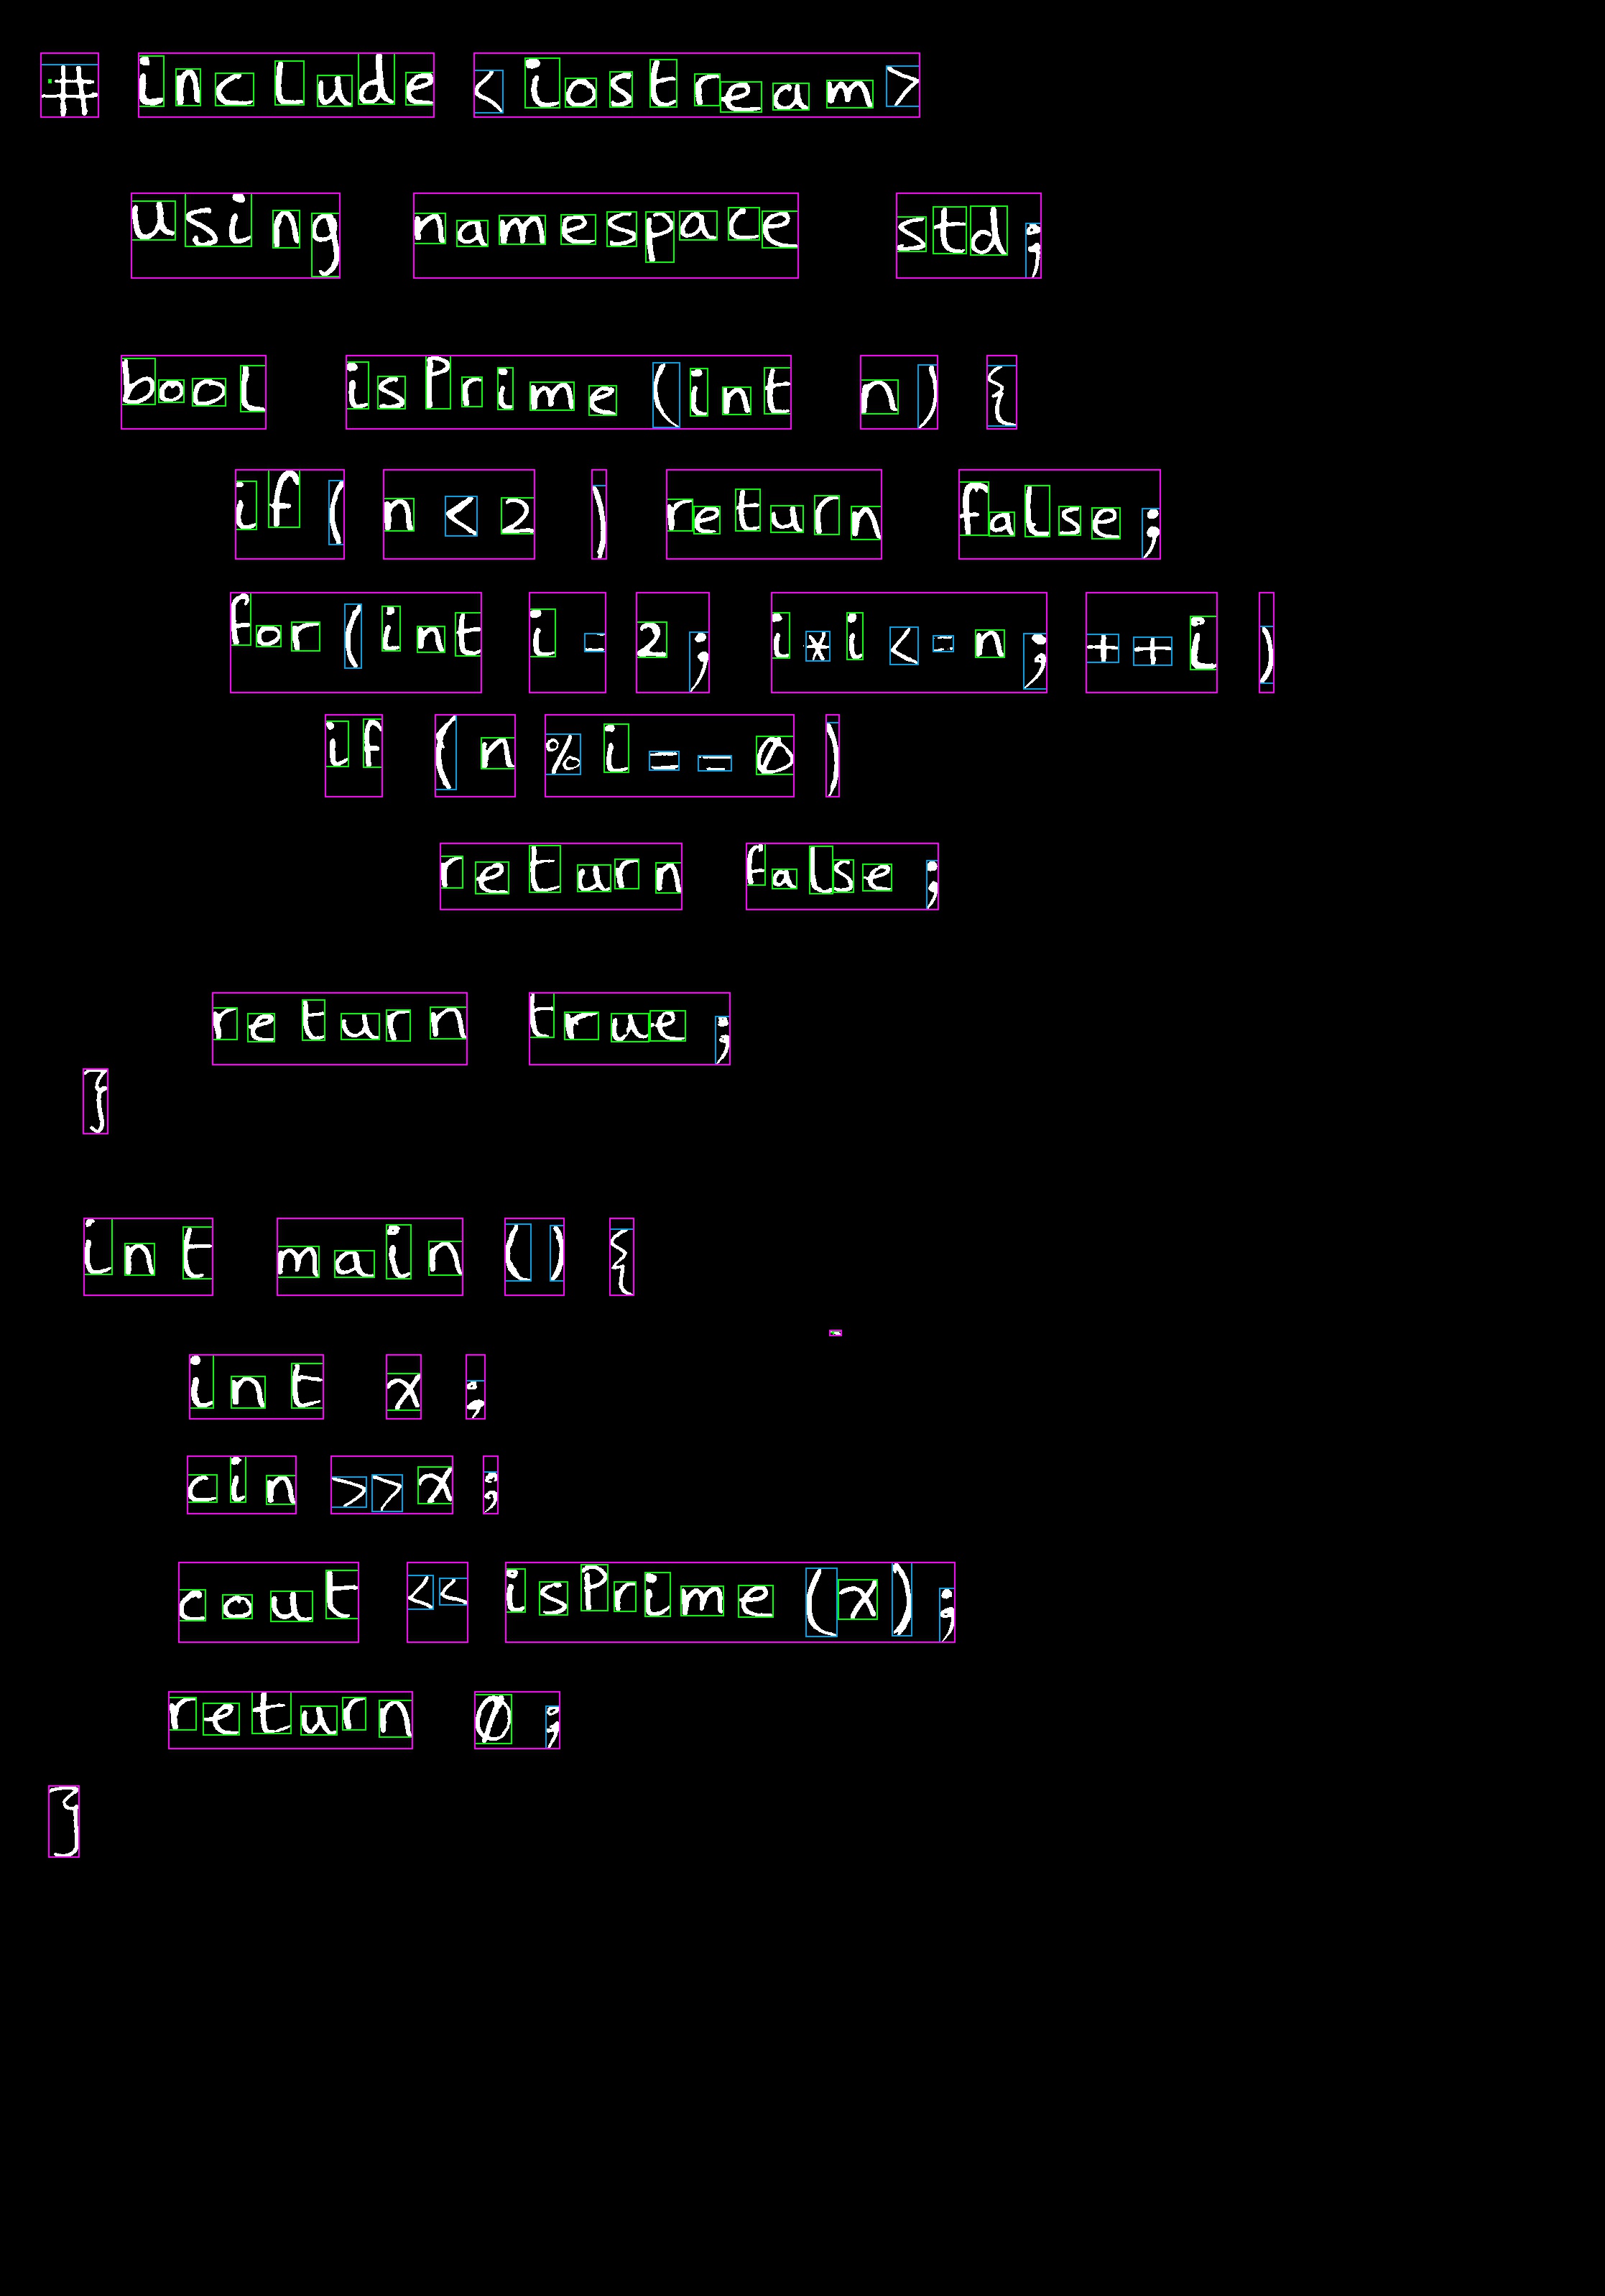 # include <iostream>
using namespace std;
bool isPrime (int n) {
if ( n < 2 ) return false;
for (int i = 2; i*i <= n; ++i )
if ( n % i == 0 )
return false;
return true;
}
int main () {
int x ;
cin >>x ;
cout << isPrime (x);
return 0;
}